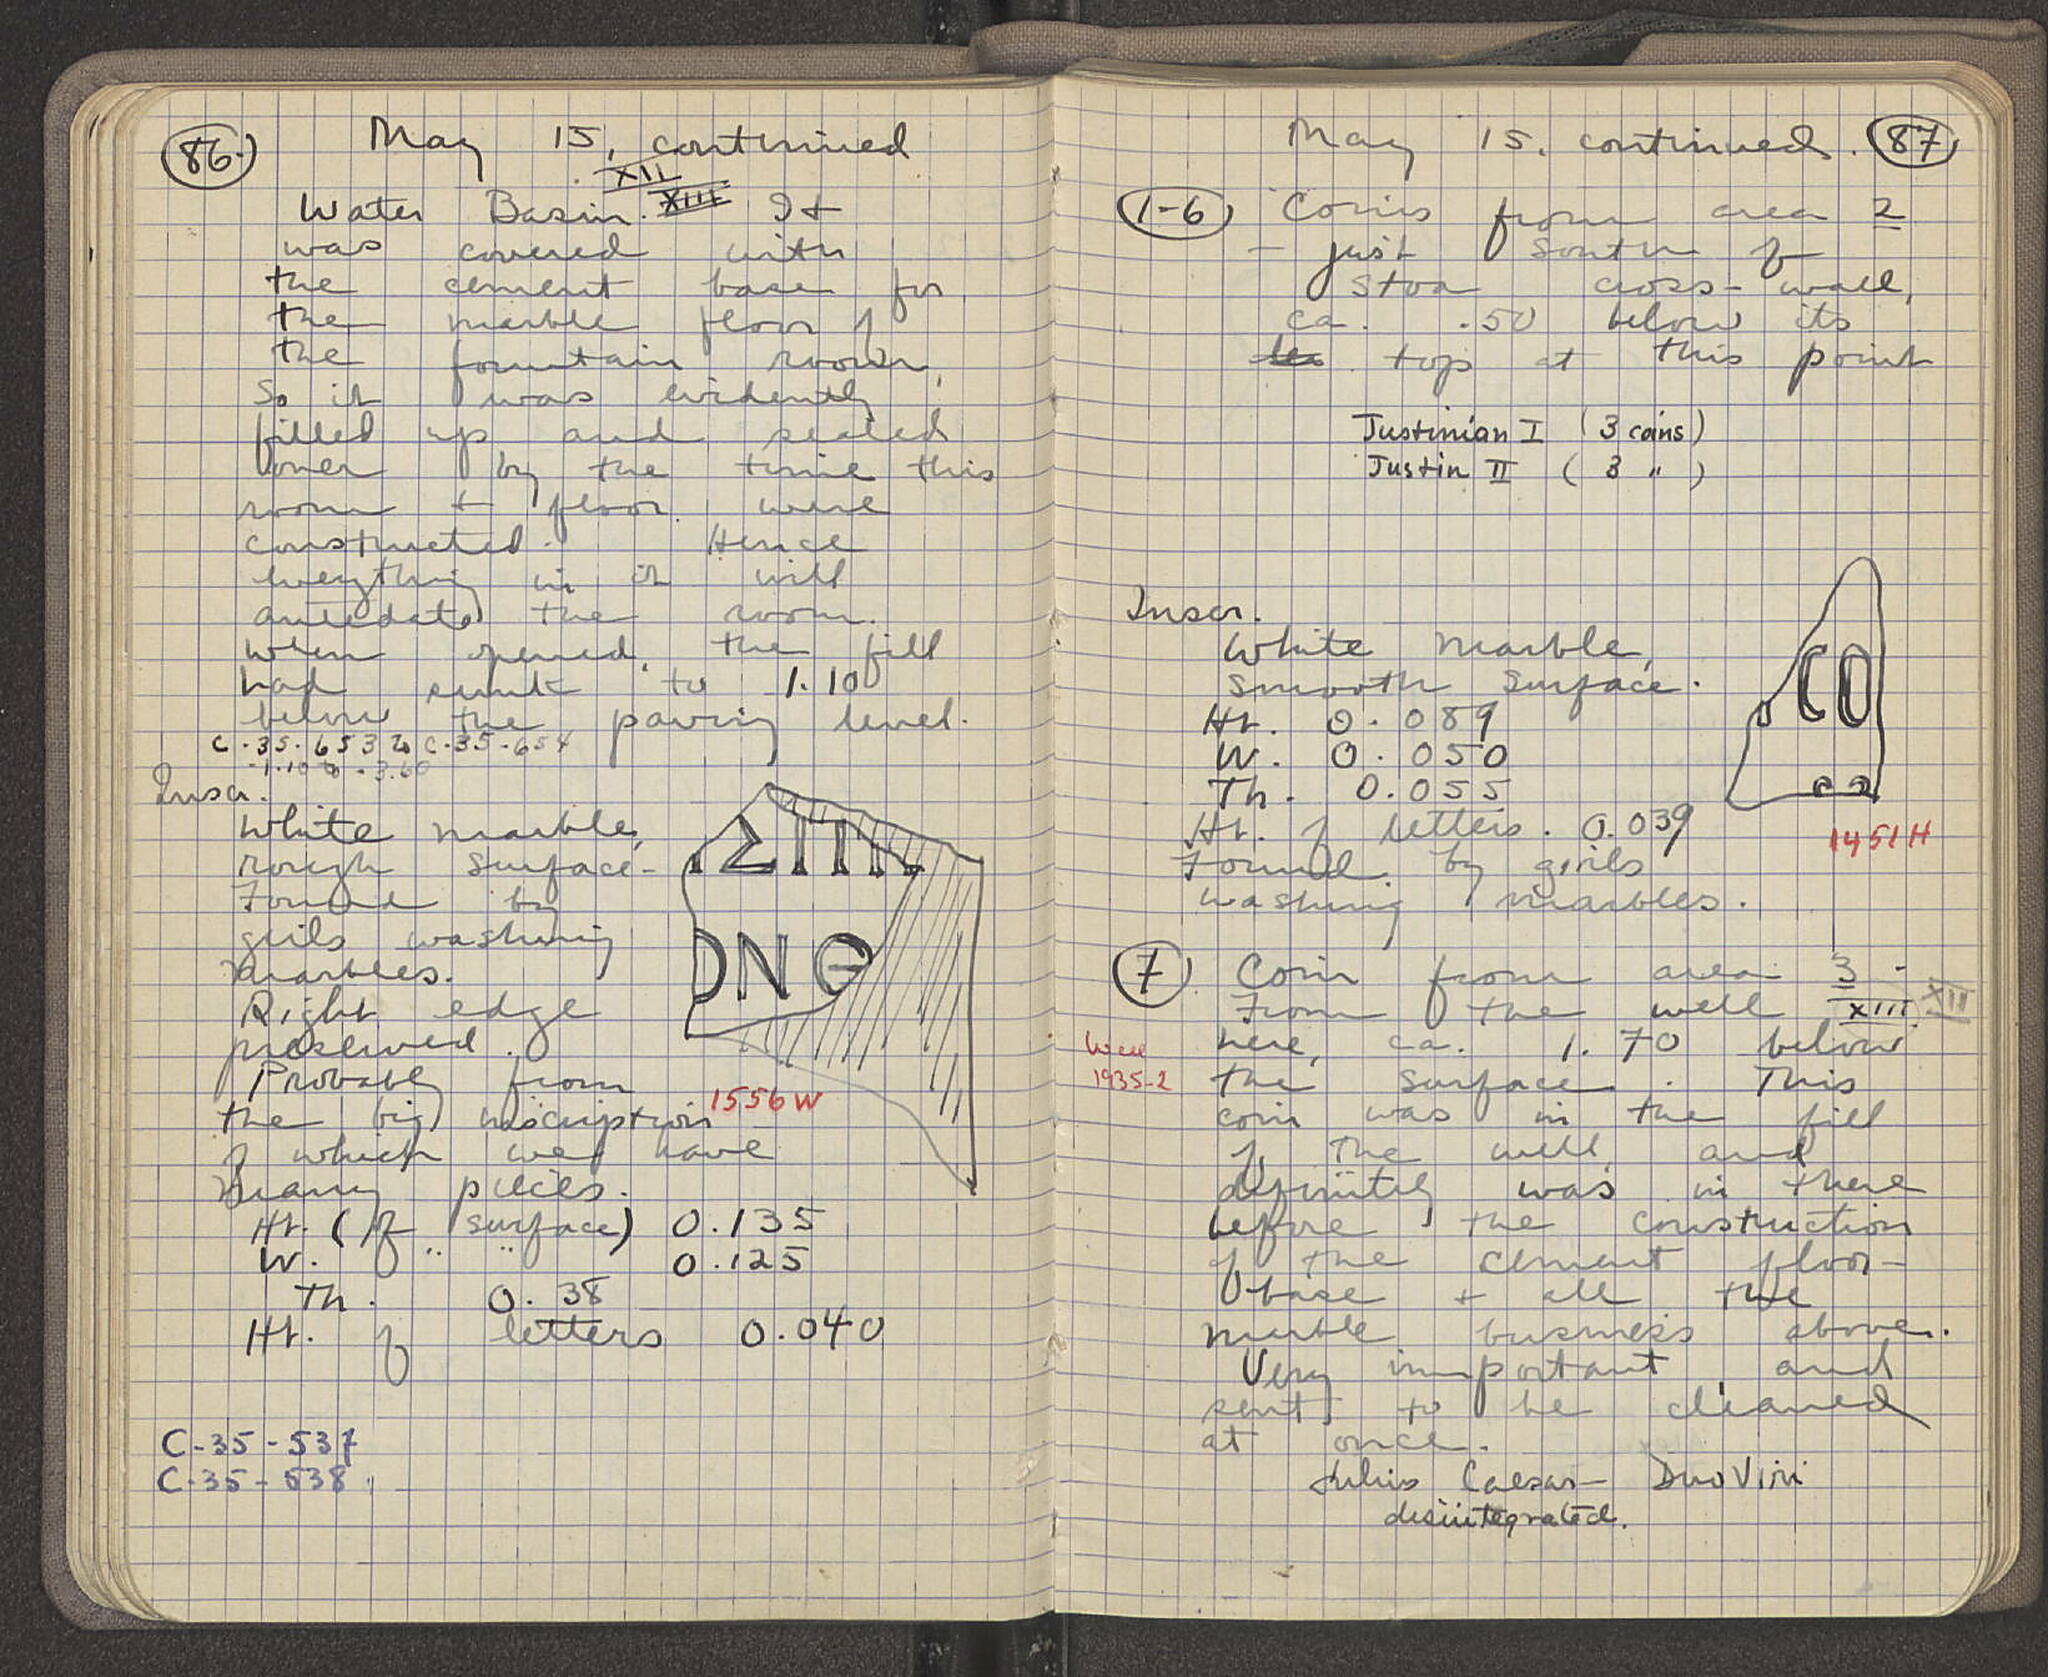 86.
May 15, continued
XII
Water Basin. XIII It
was covered with
the cement base for
the marble floor of
the fountain room,
So it was evidently
filled up and sealed
over by the time this
room + floor were
constructed. Hence
everything in it will
antedate the room.
When opened, the fill
had sunk to 1.10
below the paving level.
C-35-653 to C-35-654
-1.10 to -3.60
Inscr.
White marble,
rough surface-
Found by
girls washing
marbles.
Right edge
preserved.
Probably from
the big inscription
of which we have
many pieces.
Ht. (of surface) 0.135
W. of " " 0.125
Th. 0.38
Ht. of letters 0.040
DNΘ
1556W
C-35-537
C-35-538
May 15, continued. 87
1-6 Coins from area 2
- just South of
Stoa cross-wall,
ca. .50 below its
top at this point
Justinian I (3 coins)
Justin II (3 ")
Inscr.
White marble,
smooth surface.
Ht. 0.089
W. 0.050
Th. 0.055
Ht. of letters. 0.039
Found by girls
washing marbles.
CO
1451H
7 Coin from area 3 -
From the well XIII XII
here, ca. 1.70 below
Well
1935-2
the surface. This
coin was in the fill
of the well, and
definitely was in there
before the construction
of the cement floor-
base + all the
marble business above.
Very important, and
sent to be cleaned
at once.
Julius Caesar- Duo Viri
disintegrated.